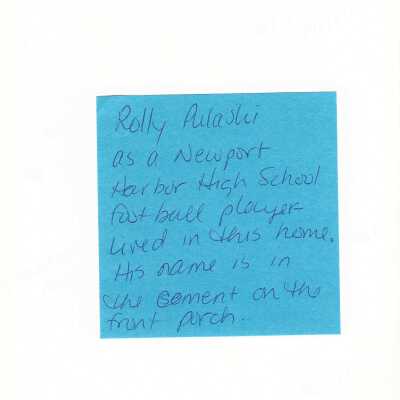 Rolly Pulaski
as a Newport
Harbor High School
football player
lived in this home.
His name is in
the cement on the
front porch.